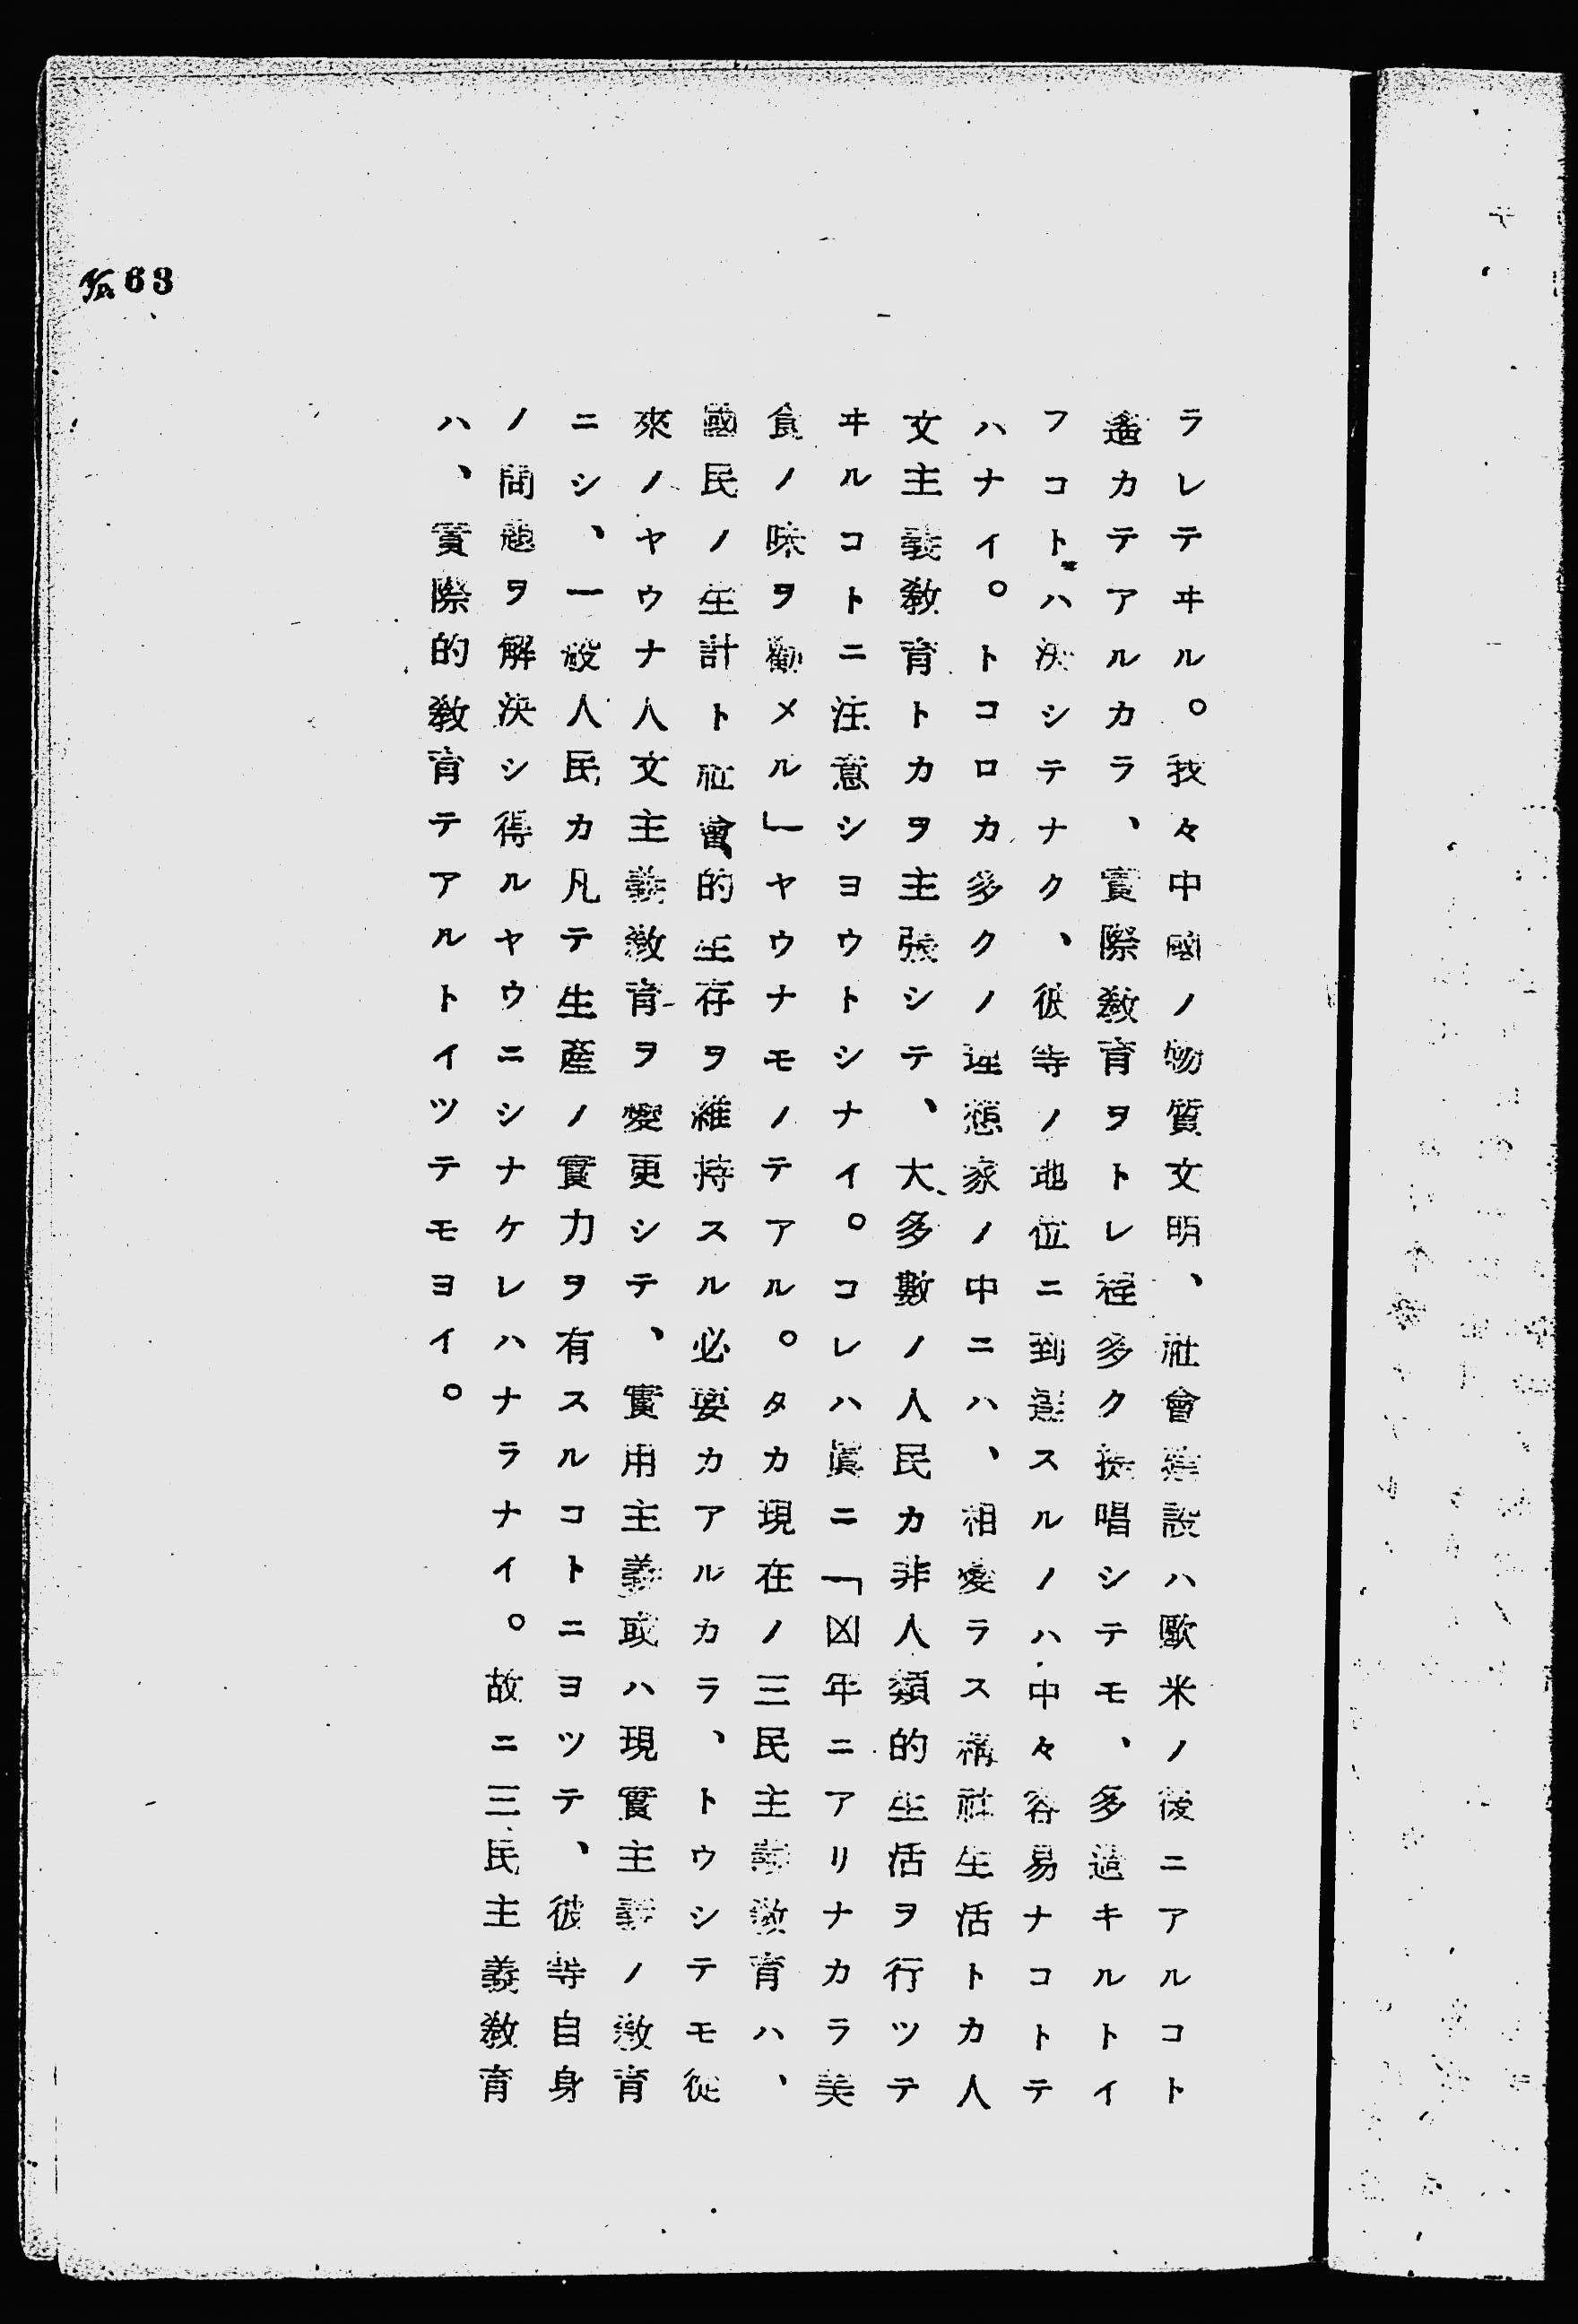 63
ラレテヰル。我々中國ノ物質文明、社會建設ハ歐米ノ後ニアルコト
遙カテアルカラ、實際教育ヲトレ程多ク提唱シテモ、多過キルトイ
フコトハ決シテナク、彼等ノ地位ニ到達スルノハ中々容易ナコトテ
ハナイ。トコロカ多クノ理想家ノ中ニハ、相變ラス構社生活トカ人
文主義教育トカヲ主張シテ、大多數ノ人民カ非人類的生活ヲ行ツテ
ヰルコトニ注意シヨウトシナイ。コレハ眞ニ「凶年ニアリナカラ美
食ノ味ヲ勸メル」ヤウナモノテアル。タカ現在ノ三民主義教育ハ、
國民ノ生計ト社會的生存ヲ維持スル必要カアルカラ、トウシテモ從
來ノヤウナ人文主義教育ヲ變更シテ、實用主義或ハ現實主義ノ教育
ニシ、一般人民カ凡テ生產ノ實力ヲ有スルコトニヨツテ、彼等自身
ノ問題ヲ解決シ得ルヤウニシナケレハナラナイ。故ニ三民主義教育
ハ、實際的教育テアルトイツテモヨイ。